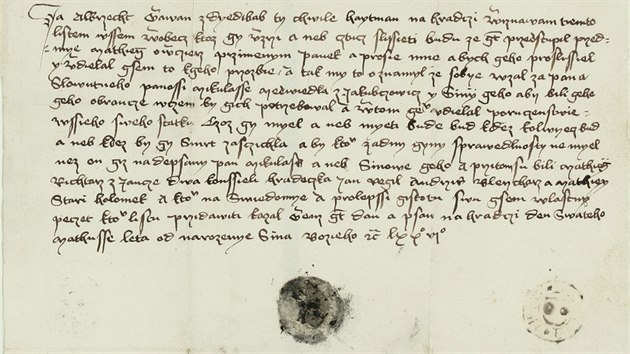 Ja Albrecht z ty chwile haytman na hradczi wiznawam tiemto
listem wssem wobecz ktoz gy uzrzi a neb cztucz slisseti budu ze gt przedstupil przed
mye Mathieg przimenym Panek a prosie mne abych geho proslissel
y udielal gsem to k geho prozbie a tak my to oznamyl ze sobye wzal za pana
Slowutneho panossi Mikulasse z Jakubczowicz y Siny geho aby bili geho
geho obrancze w czem by gich potrzeboval a w tom geᵘ udielal poruczenstwie
wssieho sweho statku Czoz gy myel a neb myeti bude bud kdez kolywiek bud
a neb kdez by gy Smrt zasczichla a by ktoˢ zadny gyny sprawedlnosty ne myel
nez on gyz nadepsany pan Mikulass a neb Sinowe geho A przytomsu bili Mathieg
Richtarz z dwa konssieli hradeczka Jan Andrys a Mathiey
Stari A ktoˢ na Swiedomye a prolepssi gistotu swu gsem wlastny
peczet ktoˢ listu przidawiti kazal Genz gt dan a psan na hradczi den Swateho
Mathusse leta od narozenye Sina Bozieho